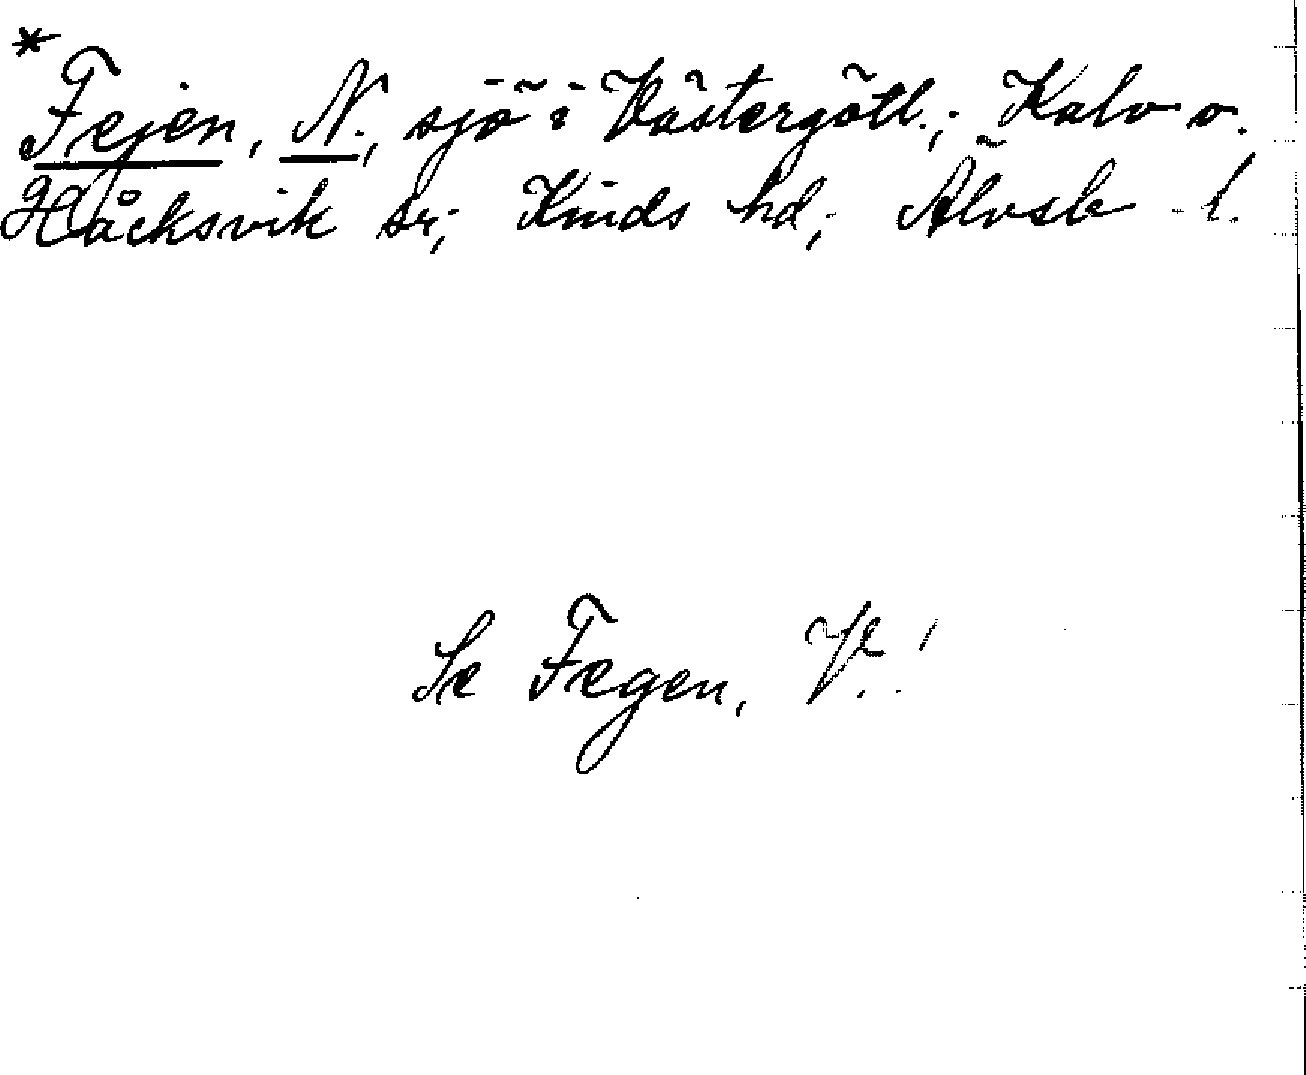 * Fejen, N., sjö i Västergötl.; Kalv o.
Håcksvik sr; Kinds hd; Älvsb l.
Se Fegen,